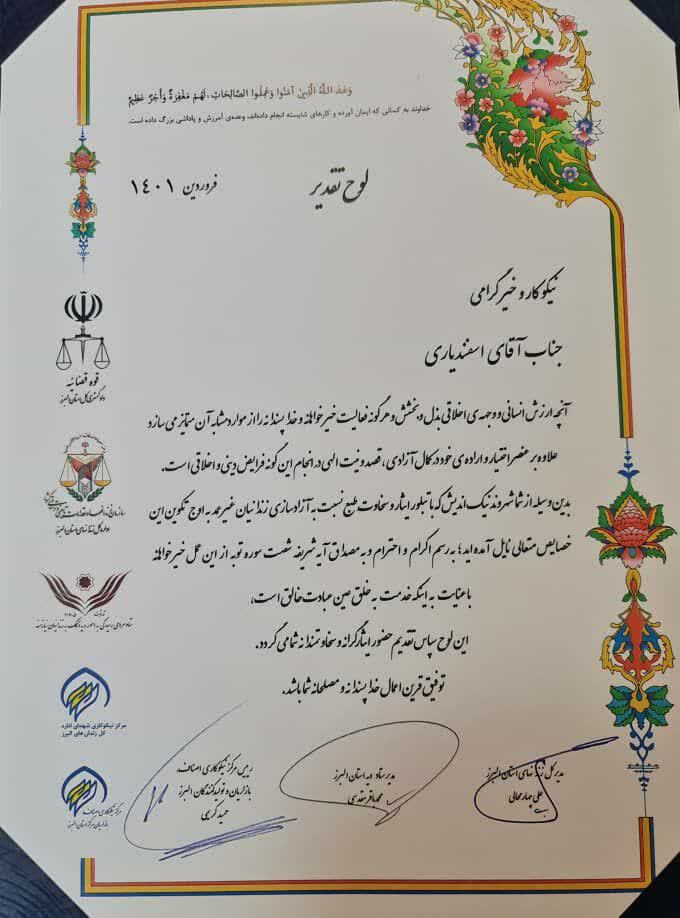 وَعَدَ اللَّهُ الَّذِينَ آمَنُوا وَعَمِلُوا الصَّالِحَاتِ، لَهُمْ مَغْفِرَةٌ وَأَجْرٌ عَظِيمٌ
خداوند به کسانی که ایمان آورده و کارهای شایسته انجام داده‌اند، وعده‌ی آمرزش و پاداشی بزرگ داده است.
لوح تقدیر
فروردین ۱۴۰۱
نیکوکار و خیر گرامی
جناب آقای اسفندیاری
آنچه ارزش انسانی و وجهه‌ی اخلاقی بذل و بخشش و هرگونه فعالیت خیرخواهانه و خداپسندانه را از موارد مشابه آن متمایز می سازد
علاوه بر عنصر اختیار و اراده‌ی خود در کمال آزادی، قصد و نیت الهی در انجام این گونه فرایض دینی و اخلاقی است.
بدین وسیله از شما شهروند نیک اندیش که با تبلور ایثار و سخاوت طبع نسبت به آزادسازی زندانیان غیرعمد به اوج تکوین این
خصایص متعالی نایل آمده اید؛ به رسم اکرام و احترام و به مصداق آیه شریفه شصت سوره توبه از این عمل خیرخواهانه
با عنایت به اینکه خدمت به خلق عین عبادت خالق است،
این لوح سپاس تقدیم حضور ایثارگرانه و سخاوتمندانه شما می گردد.
توفیق قرین اعمال خداپسندانه و مصلحانه شما باشد.
قوه قضائیه
دادگستری کل استان البرز
اداره کل زندانهای استان البرز
مرکز نیکوکاری شهدای اداره
کل زندان های البرز
مرکز نیکوکاری اصناف
بازاریان مرکز استان البرز
مدیر کل زندانهای استان البرز
علی چهارمحالی
مدیر ستاد دیه استان البرز
محمدباقر مقدسی
رییس مرکز نیکوکاری اصناف،
بازاریان و تولیدکنندگان البرز
حمید کریمی